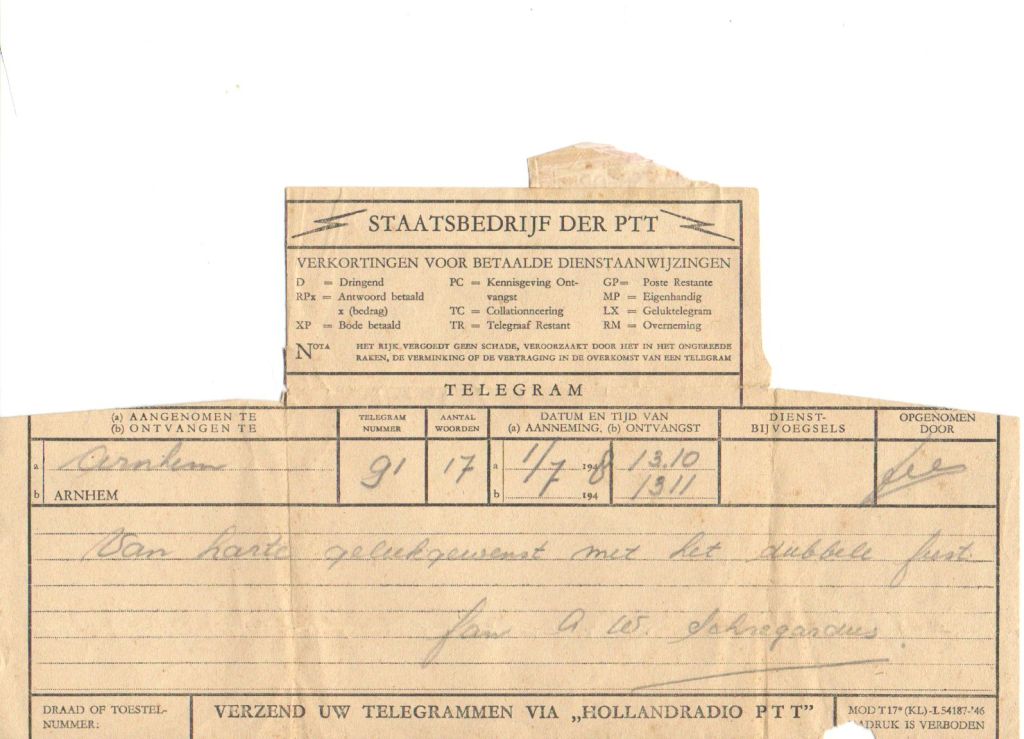 STAATSBEDRIJF DER PTT
VERKORTINGEN VOOR BETAALDE DIENSTAANWIJZINGEN
D = Dringend PC = Kennisgeving Ont- GP= Poste Restante
RPx = Antwoord betaald vangst MP = Eigenhandig
x (bedrag) TC = Collationneering LX = Geluktelegram
XP = Bode betaald TR = Telegraaf Restant RM = Overneming
NOTA HET RIJK VERGOEDT GEEN SCHADE, VEROORZAAKT DOOR HET IN HET ONGEREEDE
RAKEN, DE VERMINKING OF DE VERTRAGING IN DE OVERKOMST VAN EEN TELEGRAM
TELEGRAM
(a) AANGENOMEN TE TELEGRAM AANTAL DATUM EN TIJD VAN DIENST- OPGENOMEN
(b) ONTVANGEN TE NUMMER WOORDEN (a) AANNEMING, (b) ONTVANGST BIJVOEGSELS DOOR
a Arnhem 91 17 a 1/7 1948 13.10
b ARNHEM b 194 13.11
Van harte gelukgewenst met het dubbele feest
Jan A. W. Schregardus.
DRAAD OF TOESTEL- VERZEND UW TELEGRAMMEN VIA „HOLLANDRADIO PTT” MOD T 17* (KL)-L 54187-'46
NUMMER: ADRUK IS VERBODEN